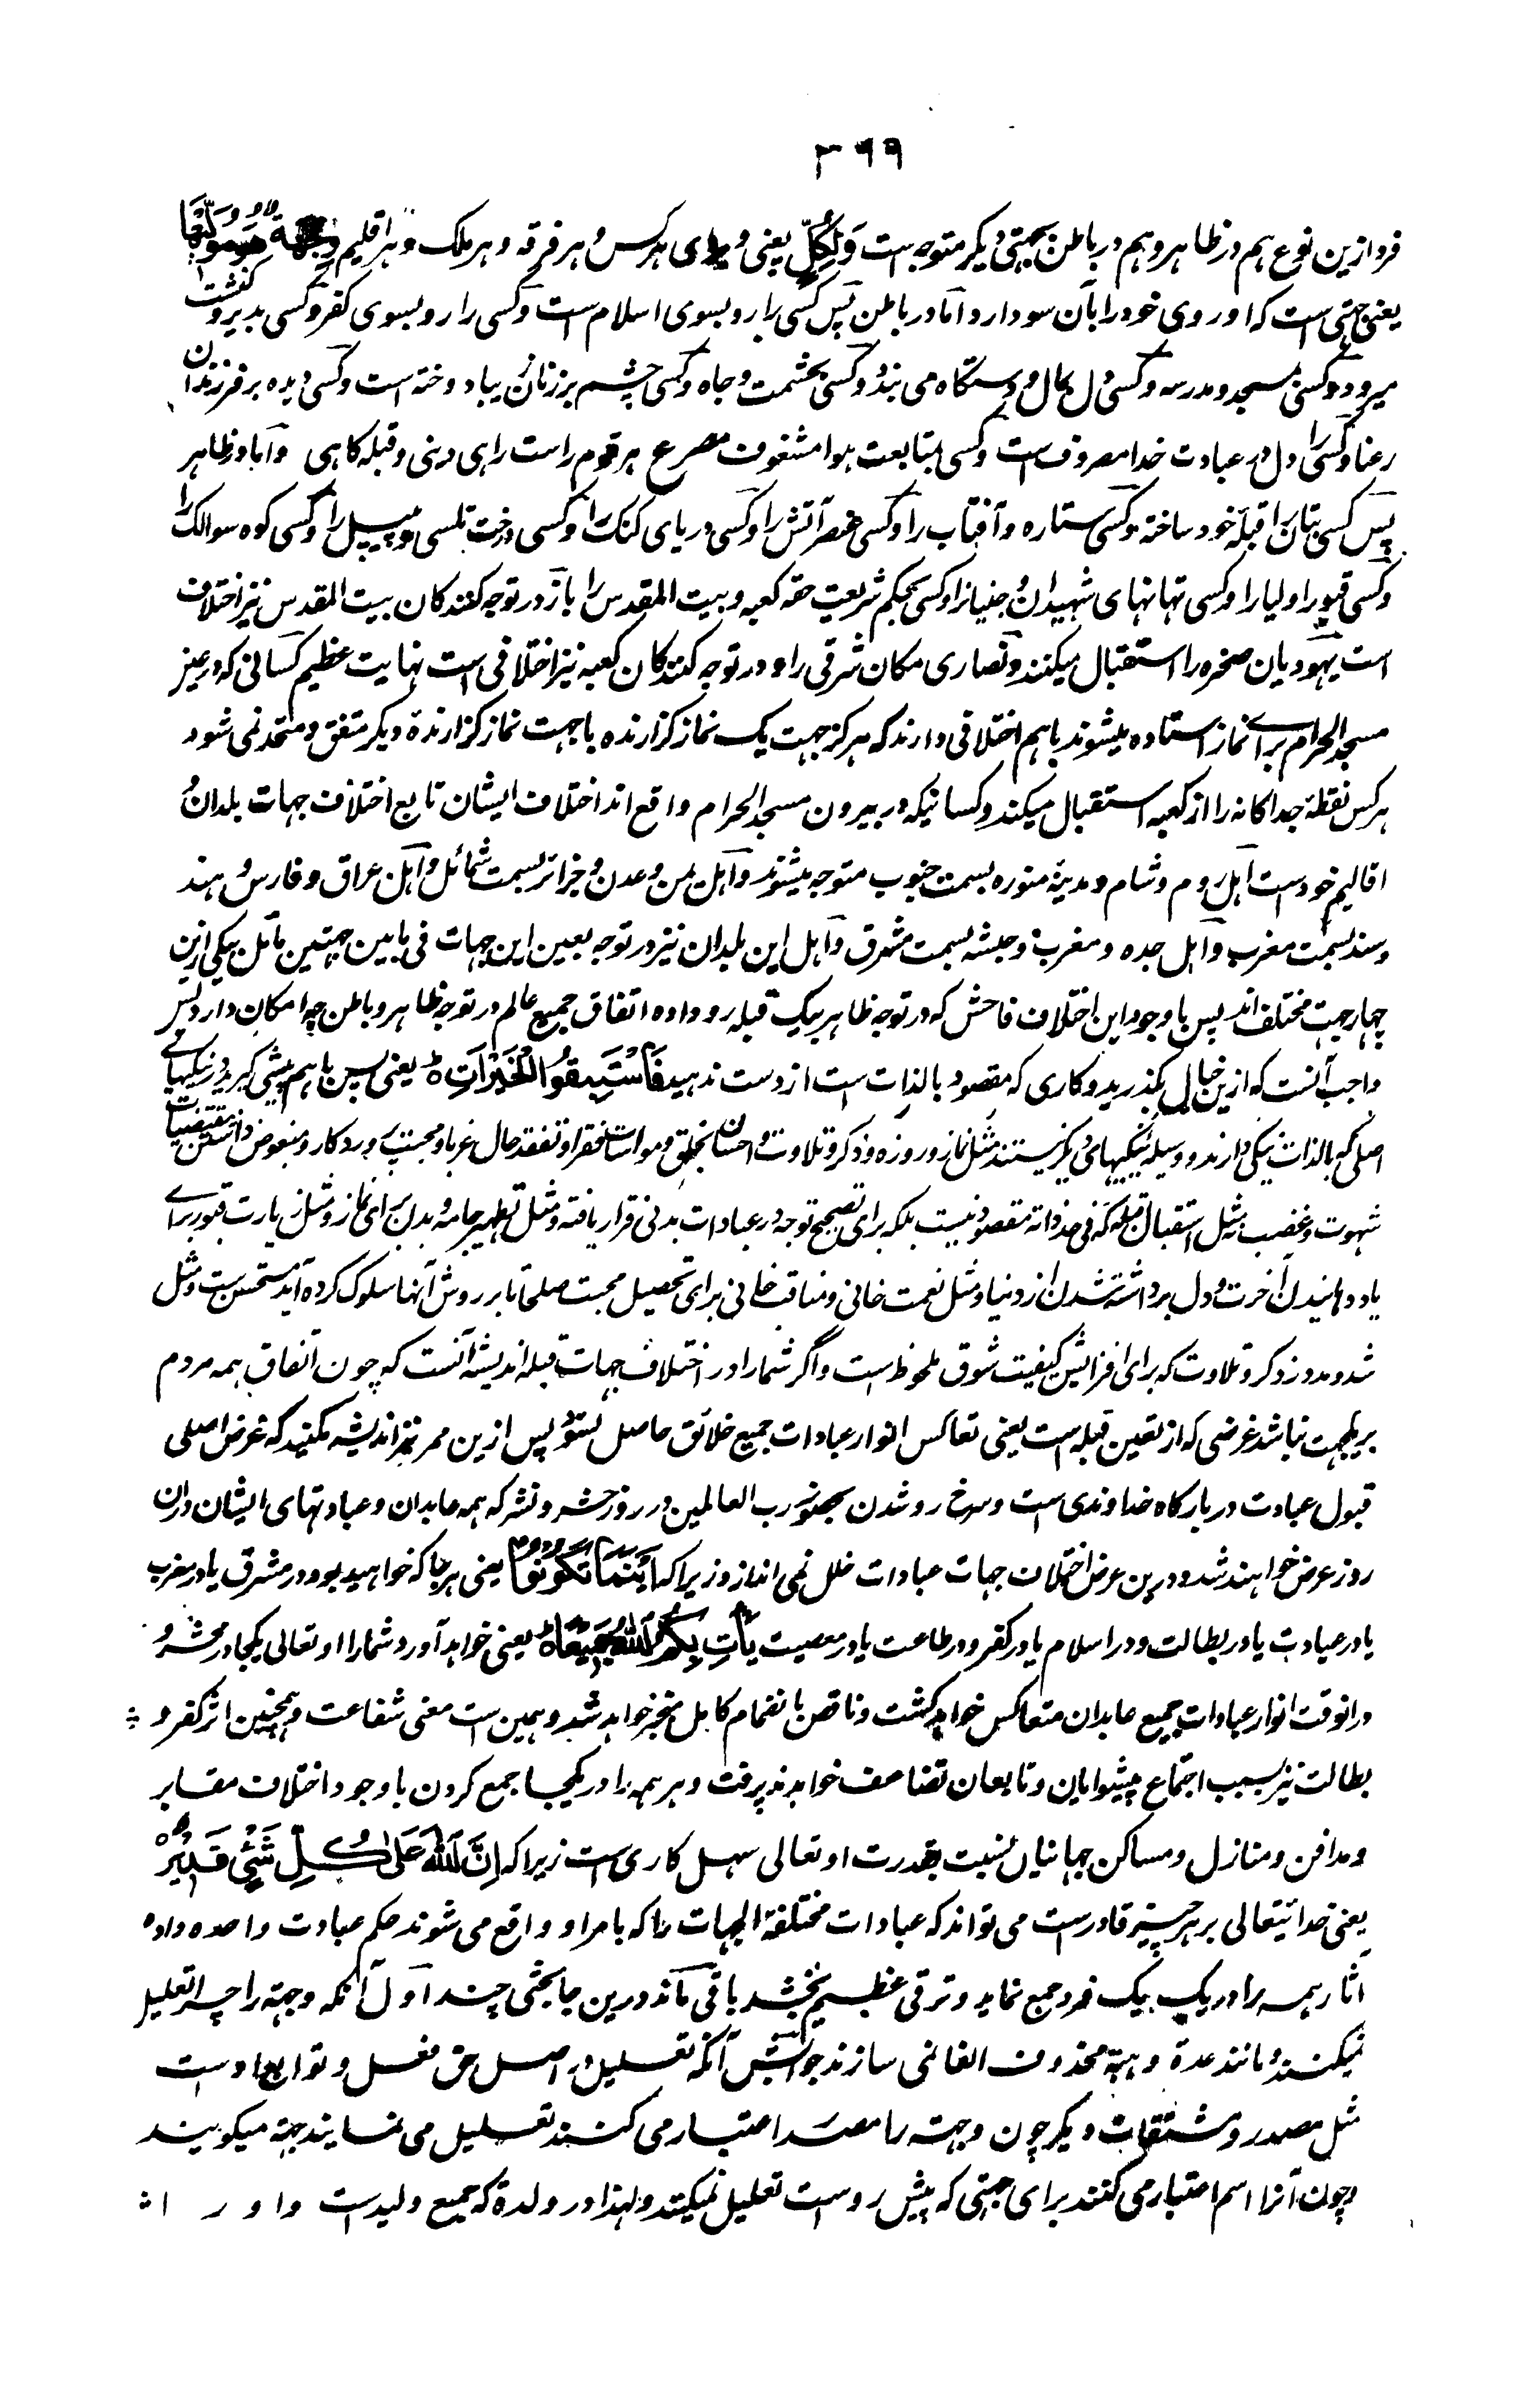 ۳۹۹
فرد ازین نوع هم در ظاهر و هم در باطن بجهتی دیگر متوجه است وَلِكُلٍّ یعنی و برای هر کس و هر فرقه و هر ملک و هر اقلیم وِجْهَةٌ هُوَ مُوَلِّيهَا
یعنی جهتی است که او روی خود را بآن سو دارد اما در باطن پس کسی را رو بسوی اسلام است و کسی را رو بسوی کفر و کسی بدیر و کنشت
میرود و کسی بمسجد و مدرسه و کسی دل بمال و دستگاه می بندد و کسی بحشمت و جاه و کسی چشم بر زنان زیبا دوخته است و کسی دیده بر فرزندان
رعنا و کسی را دل در عبادت خدا مصروف است و کسی بمتابعت هوا مشغوف مصرع هر قوم راست راهی دینی و قبله گاهی و اما در ظاهر
پس کسی بتان را قبله خود ساخته و کسی ستاره و آفتاب را و کسی عنصر آتش را و کسی دریای کنک را و کسی درخت تلسی و پیپل را و کسی کوه سوالک را
و کسی قبور اولیا را و کسی تهانهای شهیدان و جنیان را و کسی بحکم شریعت حقه کعبه و بیت المقدس را باز در توجه کنندکان بیت المقدس نیز اختلاف
است یهودیان صخره را استقبال میکنند و نصاری مکان شرقی را و در توجه کنندکان کعبه نیز اختلافی است نهایت عظیم کسانی که در عین
مسجد الحرام برای نماز استاده میشوند باهم اختلافی دارند که هرکز جهت یک نماز کزارنده با جهت نماز کزارنده دیکر متفق و متحد نمی شود
هر کس نقطه جداکانه را از کعبه استقبال میکند و کسانیکه در بیرون مسجد الحرام واقع اند اختلاف ایشان تابع اختلاف جهات بلدان و
اقالیم خود است اهل روم و شام و مدینه منوره بسمت جنوب متوجه میشوند و اهل یمن و عدن و جزائر بسمت شمائل و اهل عراق و فارس و هند
و سند بسمت مغرب و اهل جده و مغرب و حبشه بسمت مشرق و اهل این بلدان نیز در توجه بعین این جهات فی ما بین جهتین مائل بیکی ازین
چهار جهت مختلف اند پس با وجود این اختلاف فاحش که در توجه ظاهر بیک قبله رو داده اتفاق جمیع عالم در توجه ظاهر و باطن چه امکان دارد پس
واجب آنست که ازین خیال بکذرید و کاری که مقصود بالذات است از دست ندهید فَاسْتَبِقُوا الْخَيْرَاتِ ط یعنی پس باهم پیشی کیرید در نیکیهای
اصلی که بالذات نیکی دارند و وسیله نیکیهای دیکر نیستند مثل نماز و روزه و ذکر و تلاوت و احسان بخلق و مواسات فقرا و تفقد حال غربا و محبت پروردکار و مبغوض داشتن مقتضیات
شهوت و غضب نه مثل استقبال قبله که فی حد ذاته مقصود نیست بلکه برای تصحیح توجه در عبادات بدنی قرار یافته و مثل تطهیر جامه و بدن برای نماز و مثل زیارت قبور برای
یاد دهانیدن آخرت و دل برداشته شدن از دنیا و مثل نعمت خانی و مناقب خانی برای تحصیل محبت صلحا تا بر روش آنها سلوک کرده آید مستحسن است و مثل
شد و مد و ذکر و تلاوت که برای افزایش کیفیت شوق ملحوظ است و اگر شما را در اختلاف جهات قبله اندیشه آنست که چون اتفاق همه مردم
بر یکجهت نباشد غرضی که از تعین قبله است یعنی تعاکس انوار عبادات جمیع خلائق حاصل نشود پس ازین ممر نیز اندیشه مکنید که غرض اصلی
قبول عبادت در بارکاه خداوندی است و سرخ رو شدن بحضور رب العالمین در روز حشر و نشر که همه عابدان و عبادتهای ایشان دران
روز عرض خواهند شد و درین عرض اختلاف جهات عبادات خلل نمی اندازد زیرا که أَيْنَمَا تَكُونُوا یعنی هر جا که خواهید بود در مشرق یا در مغرب
یا در عبادت یا در بطالت و در اسلام یا در کفر و در طاعت یا در معصیت يَأْتِ بِكُمُ اللَّهُ جَمِيعًا ط یعنی خواهد آورد شما را او تعالی یکجا در محشر و
درانوقت انوار عبادات جمیع عابدان متعاکس خواهد کشت و ناقص بانضمام کامل منجبر خواهد شد و همین است معنی شفاعت و همچنین اثر کفر و
بطالت نیز بسبب اجتماع پیشوایان و تابعان تضاعف خواهد پذیرفت و هر همه را در یکجا جمع کردن با وجود اختلاف مقابر
و مدافن و منازل و مساکن جهانیان بنسبت بقدرت او تعالی سهل کاری است زیرا که إِنَّ اللَّهَ عَلَى كُلِّ شَيْءٍ قَدِيرٌ
یعنی خدائیتعالی بر هر چیز قادر است می تواند که عبادات مختلفة الجهات را که بامر او واقع می شوند حکم عبادت واحده داده
آثار همه را در یک بیک فرد جمع نماید و ترقی عظیم بخشد باقی ماند درین جا بحثی چند اول آنکه وجهة را چرا تعلیل
نمیکنند و مانند عدة و هبة محذوف الفا نمی سازند جوابش آنکه تعلیل در اصل حق فعل و توابع اوست
مثل مصدر و مشتقات دیکر چون وجهة را مصدر اعتبار می کنند تعلیل می نمایند جهة میکویند
و چون آنرا اسم اعتبار می کنند برای جهتی که پیش روست تعلیل نمیکنند و لهذا در ولدة که جمع ولیدست واو را